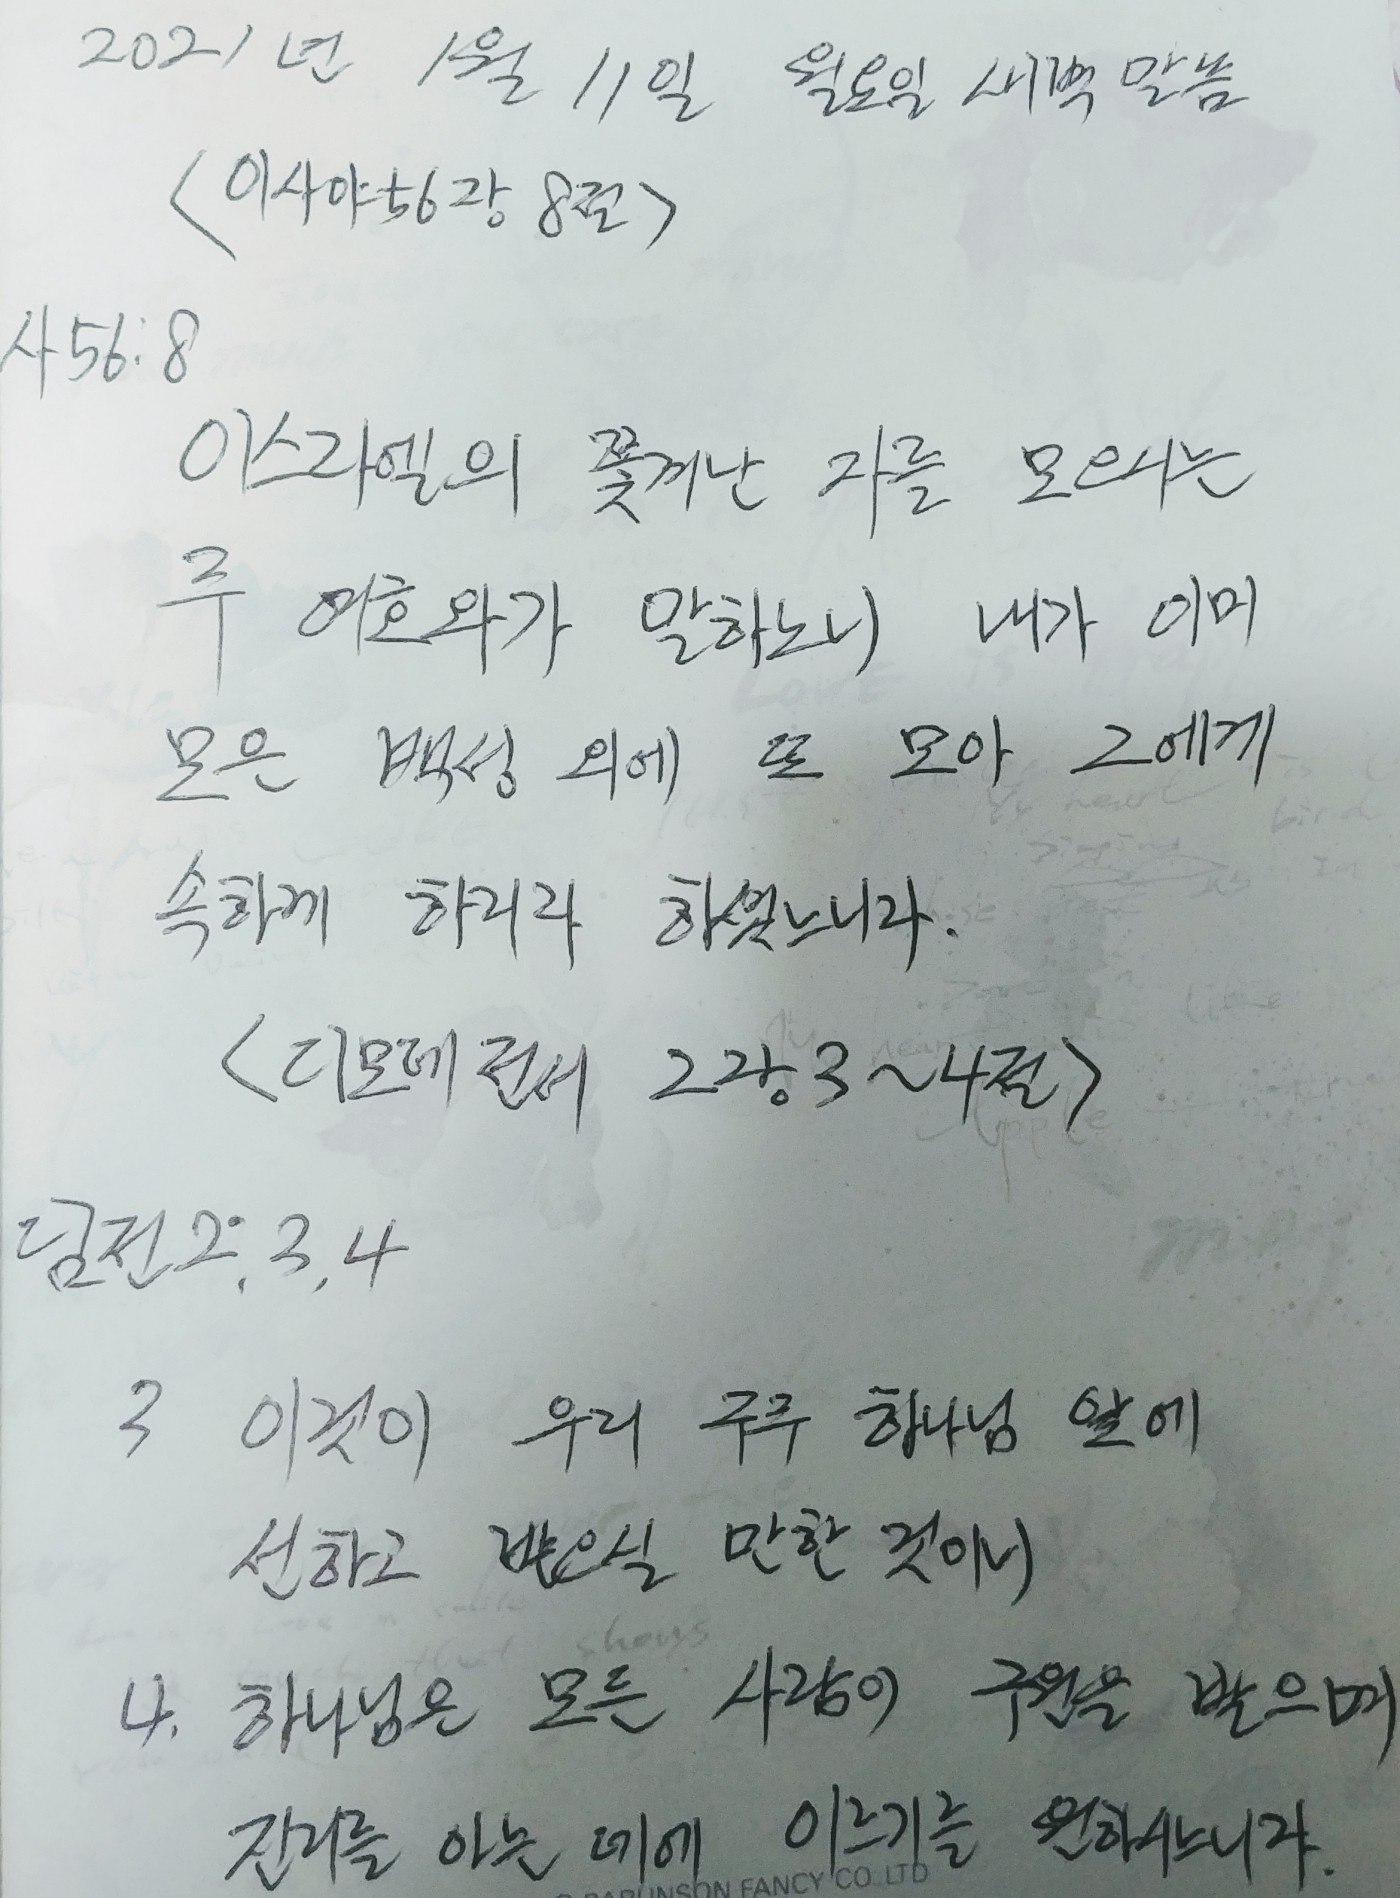 2021년 1월 11일 월요일 새벽 말씀
<이사야 56장 8절>
사 56:8
이스라엘의 쫓겨난 자를 모으시는
주 여호와가 말하노니 내가 이미
모은 백성 외에 또 모아 그에게
속하게 하리라 하셨느니라.
<디모데전서 2장 3~4절>
딤전 2:3,4
3 이것이 우리 구주 하나님 앞에
선하고 받으실 만한 것이니
4. 하나님은 모든 사람이 구원을 받으며
진리를 아는 데에 이르기를 원하시느니라.
FANCY CO. LTD